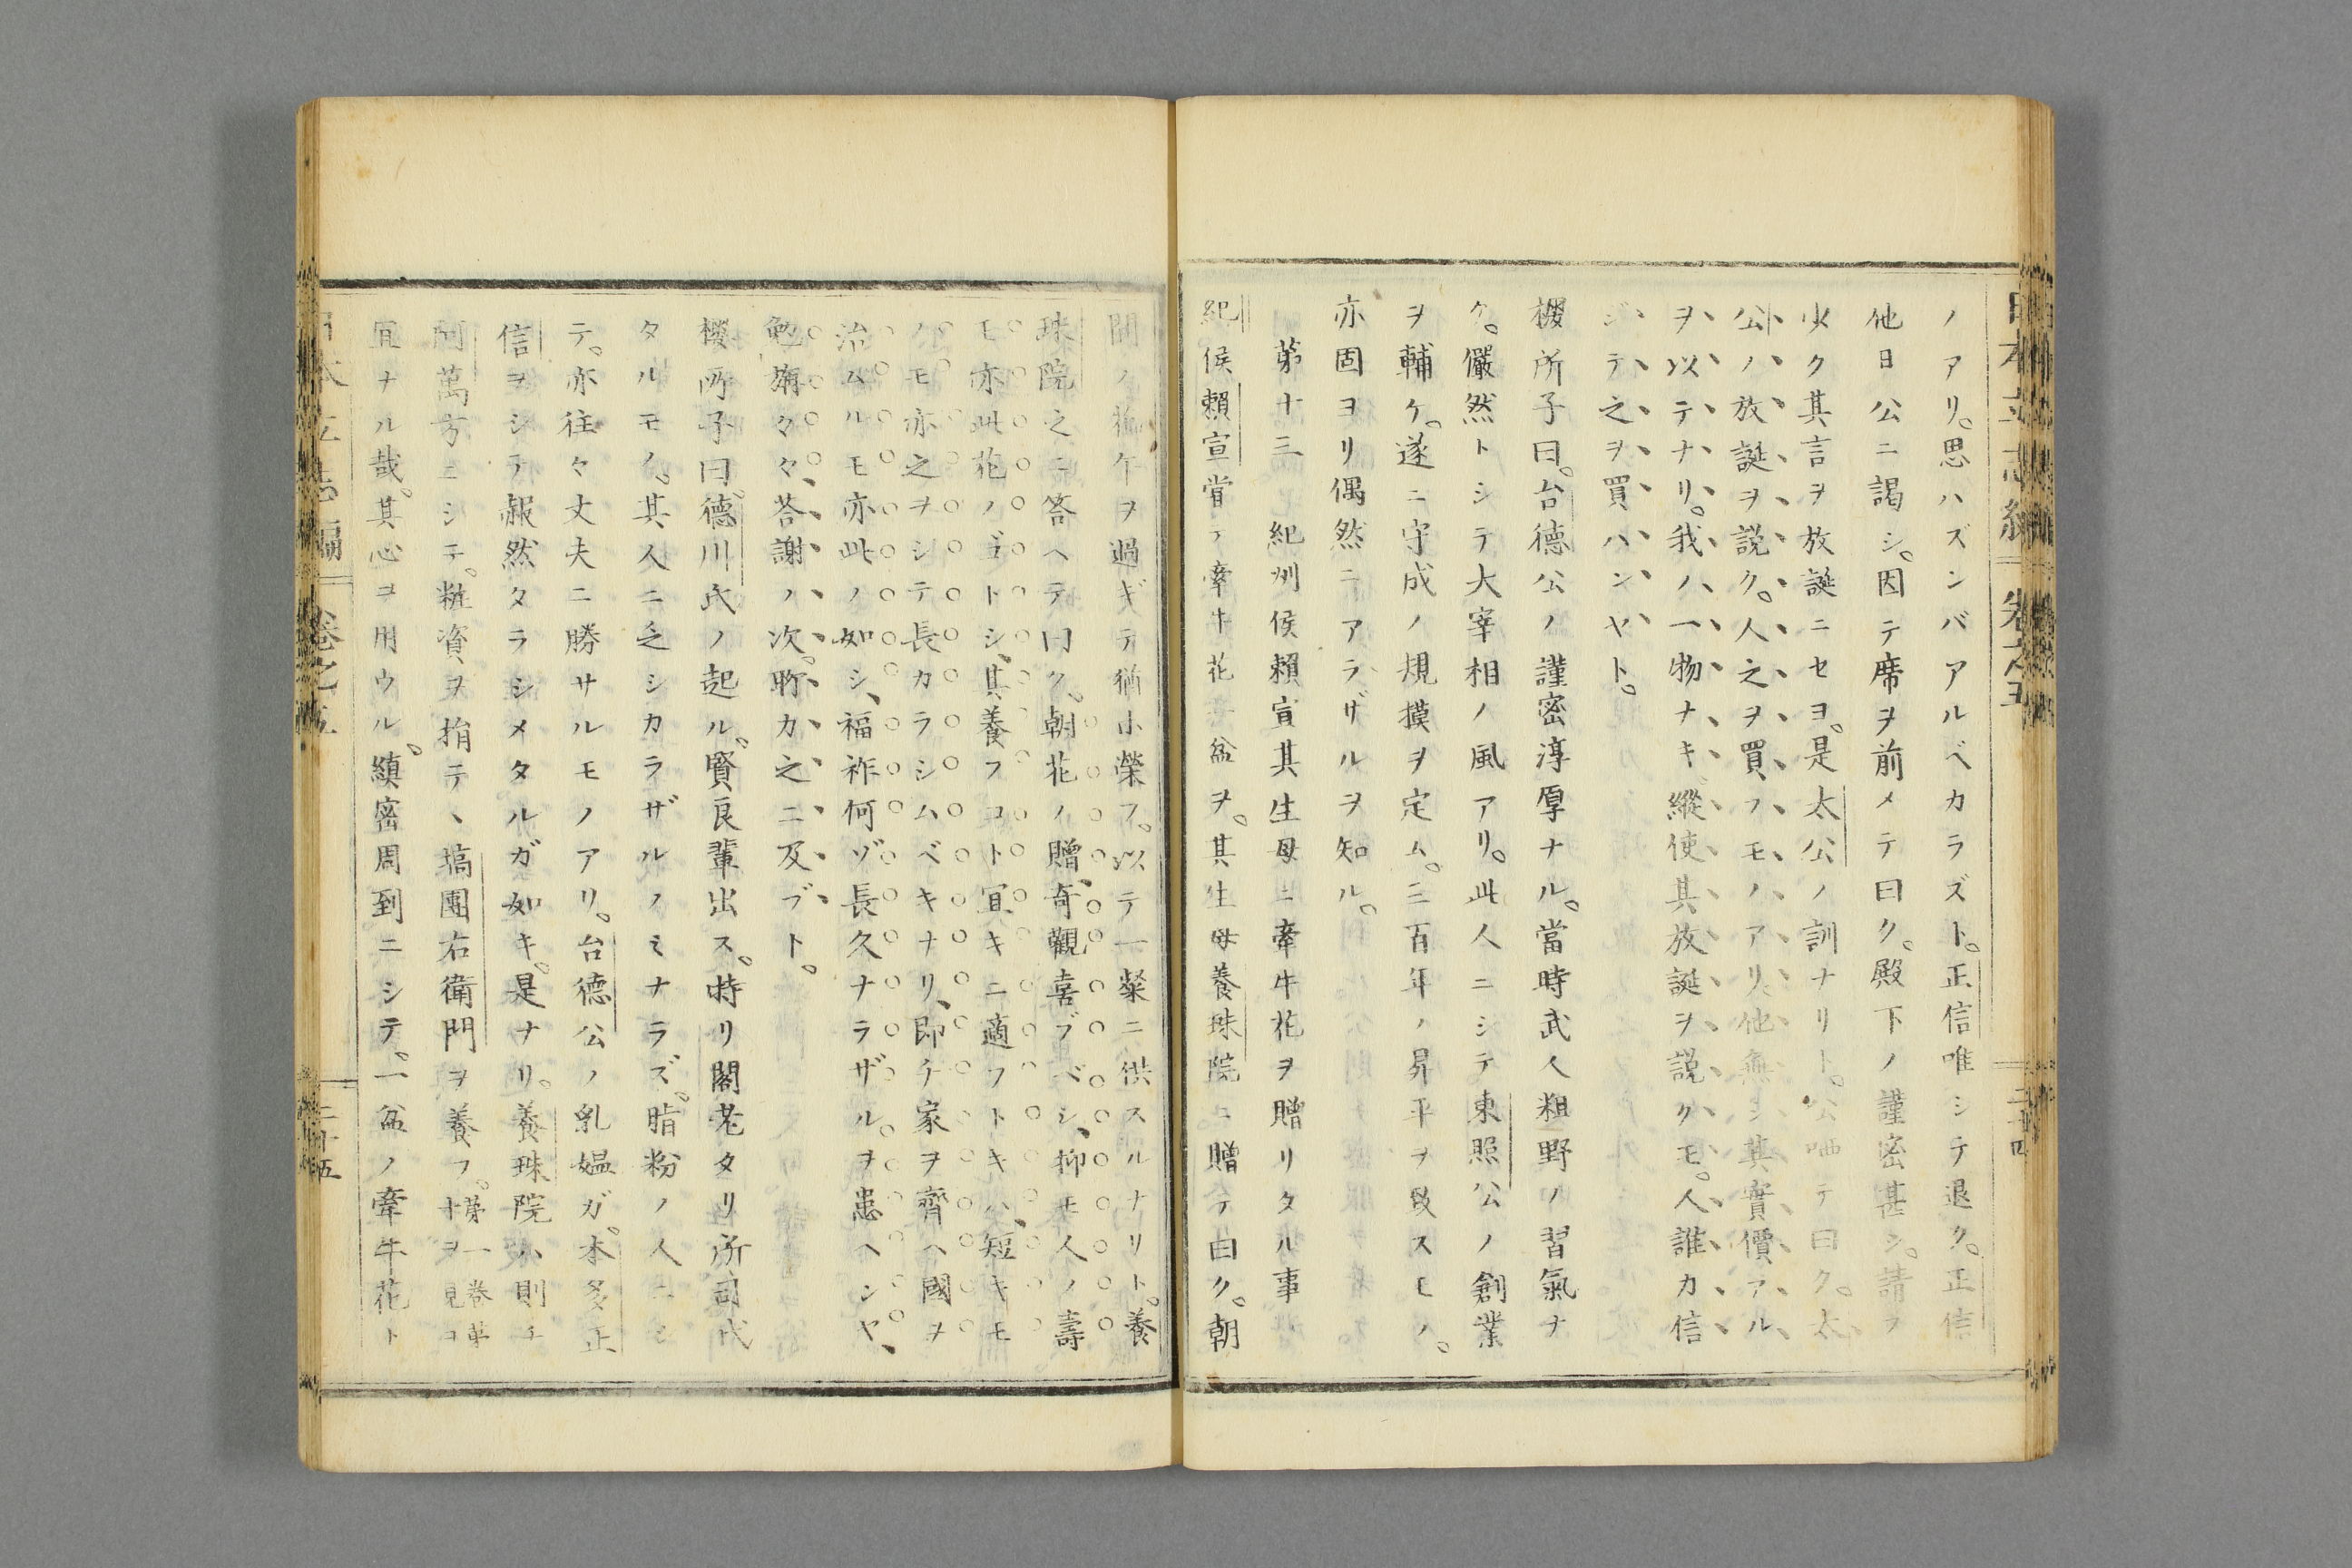 ノアリ。思ハズンバアルベカラズト。正信唯シテ退ク。正信
他日公ニ謁シ。因テ席ヲ前メテ曰ク。殿下ノ謹密甚シ。請ヲ
少ク其言ヲ放誕ニセヨ。是太公ノ訓ナリト。公哂テ曰ク。太
公ノ放誕ヲ説ク。人之ヲ買フモノアリ。他無シ其實價アル
ヲ以テナリ。我ノ一物ナキ、縱使其放誕ヲ説クモ。人誰カ信
ジテ之ヲ買ハンヤト。
櫻所子曰。台德公ノ謹密淳厚ナル。當時武人粗野ノ習氣ナ
ク。儼然トシテ大宰相ノ風アリ。此人ニシテ東照公ノ創業
ヲ輔ケ。遂ニ守成ノ規摸ヲ定ム。三百年ノ昇平ヲ致スモノ。
亦固ヨリ偶然ニアラザルヲ知ル。
第十三 紀州侯賴宣其生母ニ牽牛花ヲ贈リタル事
紀侯賴宣嘗テ牽牛花ノ盆ヲ。其生母養珠院ニ贈テ曰ク。朝
開ノ花午ヲ過ギテ猶小榮フ。以テ一粲ニ供スルナリト。養
珠院之ニ答ヘテ曰ク。朝花ノ贈、奇觀喜ブベシ、抑モ人ノ壽
モ亦此花ノゴトシ、其養フコト宜キニ適フトキハ、短キモ
ノモ亦之ヲシテ長カラシムベキナリ、即チ家ヲ齊ヘ國ヲ
治ムルモ亦此ノ如シ、福祚何ゾ長久ナラザル。ヲ患ヘンヤ、
勉旃々々、荅謝ノ次。聊カ之ニ及ブト。
櫻所子曰。德川氏ノ起ル。賢良輩出ス。特リ閣老タリ所司代
タルモノ。其人ニ乏シカラザルノミナラズ。脂粉ノ人ニシ
テ。亦往々丈夫ニ勝サルモノアリ。台德公ノ乳媼ガ。本多正
信ヲシテ赧然タラシメタルガ如キ。是ナリ。養珠院ハ則チ
阿萬方ニシテ。粧資ヲ捐テヽ塙團右衛門ヲ養フ。第一卷草十ヲ見コ
宜ナル哉。其心ヲ用ウル。縝密周到ニシテ。一盆ノ牽牛花ト
日本立志編 卷之五 二十四
日本立志編 卷之五 二十五